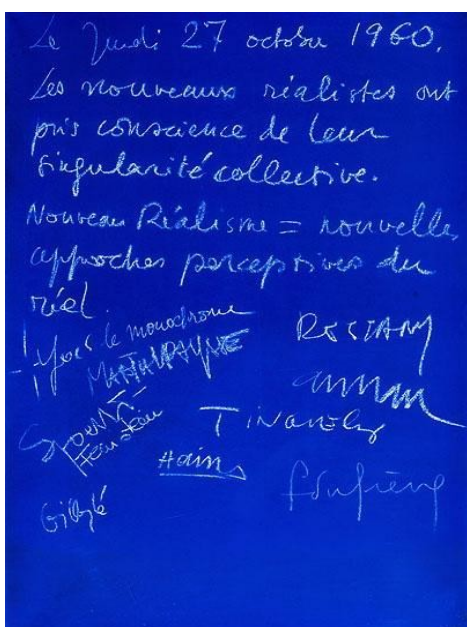 Le Jeudi 27 octobre 1960.
Les nouveaux réalistes ont
pris conscience de leur
singularité collective.
Nouveau Réalisme = nouvelles
approches perceptives du
réel.
Yves le monochrome
RESTANY
MARTIALRAYSSE
arman
TINGUELY
Hains